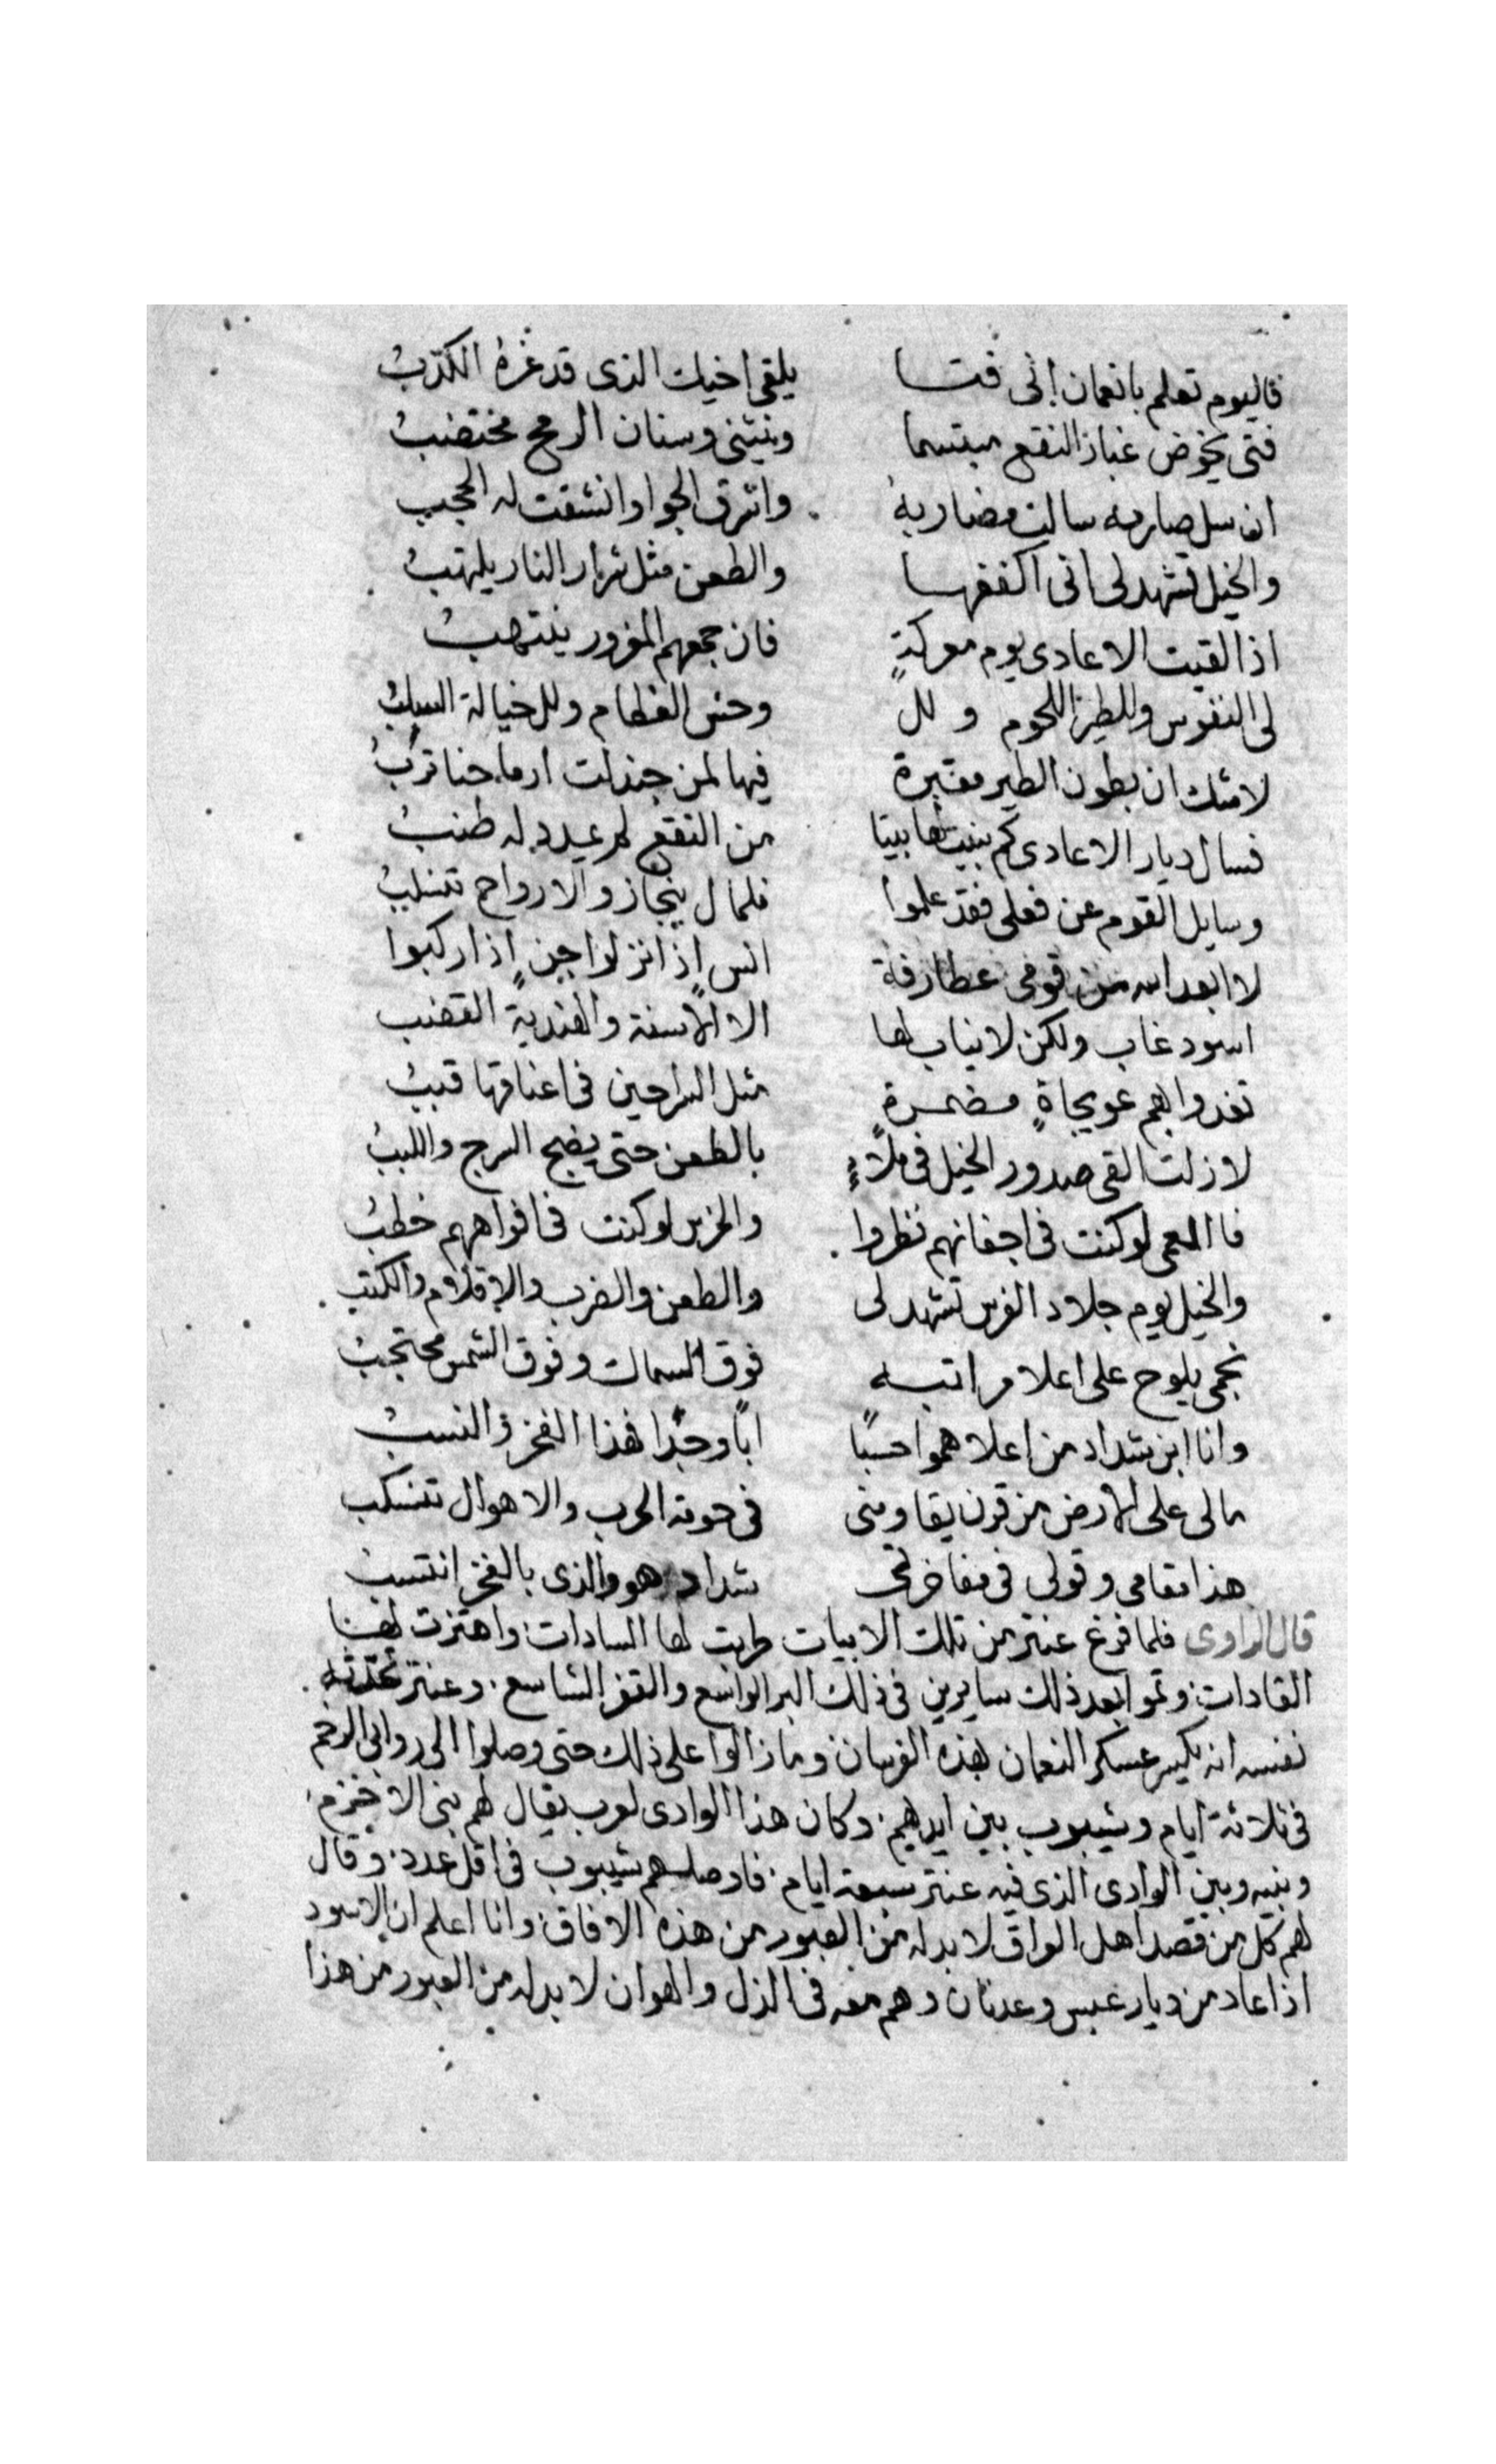 فاليوم تعلم يا نعمان اني فتا يلقى اخيك الذى قد غره الكذب
فتى يخوض غبار النقع مبتسما وينثنى وسنان الرمح مختضب
ان سل صارمه سالت مضاربه واشرق الجو وانشقت له الحجب
والخيل تشهد لى انى اكفكفها والطعن مثل شرار النار يلتهب
اذا لقيت الاعادى يوم معركةٍ فان جمعهم المغرور ينتهب
لى النفوس وللطير اللحوم ولل وحش العظام وللخيالة السلب
لا شك ان بطون الطير مقبرة فيها لمن جندلت ارماحنا ترب
فسال ديار الاعادى كم بنيت لها بيتا من النقع لم يمدد له طنب
وسايل القوم عن فعلى فقد علموا فلمال ينحاز والارواح تنسلب
لا ابعد الله من قومى غطارفة انس اذا نزلوا جن اذا ركبوا
اسود غاب ولكن لا نياب لها الا الاسنة والهندية القضب
تغدوا بهم عويجاةٍ مضمرةٍ مثل السراحين فى اعناقها قبب
لا زلت القى صدور الخيل فى ملاءٍ بالطعن حتى يضج السرج واللبب
فا العمى لو كنت فى اجفانهم نظروا والخرس لو كنت فى افواههم خطب
والخيل يوم جلاد الفرس تشهد لى والطعن والضرب والاقلام والكتب
نجمى يلوح على اعلا مراتبه فوق السماك وفوق الشمس محتجب
وانا ابن شداد من اعلاهموا حسبًا ابًا وجدًا فهذا الفخر والنسب
مالى على الارض من قرن يقاومنى فى حومة الحرب والاهوال تنسكب
هذا مقامى وقولى فى مفاخرتى شداد هو والذى بالفخر انتسب
قال الراوى فلما فرغ عنتر من تلك الابيات طربت لها السادات واهتزت لها
القادات وتموا بعد ذلك سايرين فى ذلك البر الواسع والقفر الشاسع وعنتر تحدثه
نفسه انه يكسر عسكر النعمان بهذه الفرسان وما زالوا على ذلك حتى وصلوا الى روابى الرخم
فى ثلاثة ايام وشيبوب بين ايديهم وكان هذا الوادى لعرب يقال لهم بنى الاخزم
وبينه وبين الوادى الذى فيه عنتر سبعة ايام فاوصلهم شيبوب فى اقل عدد وقال
لهم كل من قصد اهل العراق لا بد له من العبور من هذه الافاق وانا اعلم ان الاسود
اذا عاد من ديار عبس وعدنان وهم معه فى الذل والهوان لا بد له من العبور من هذا